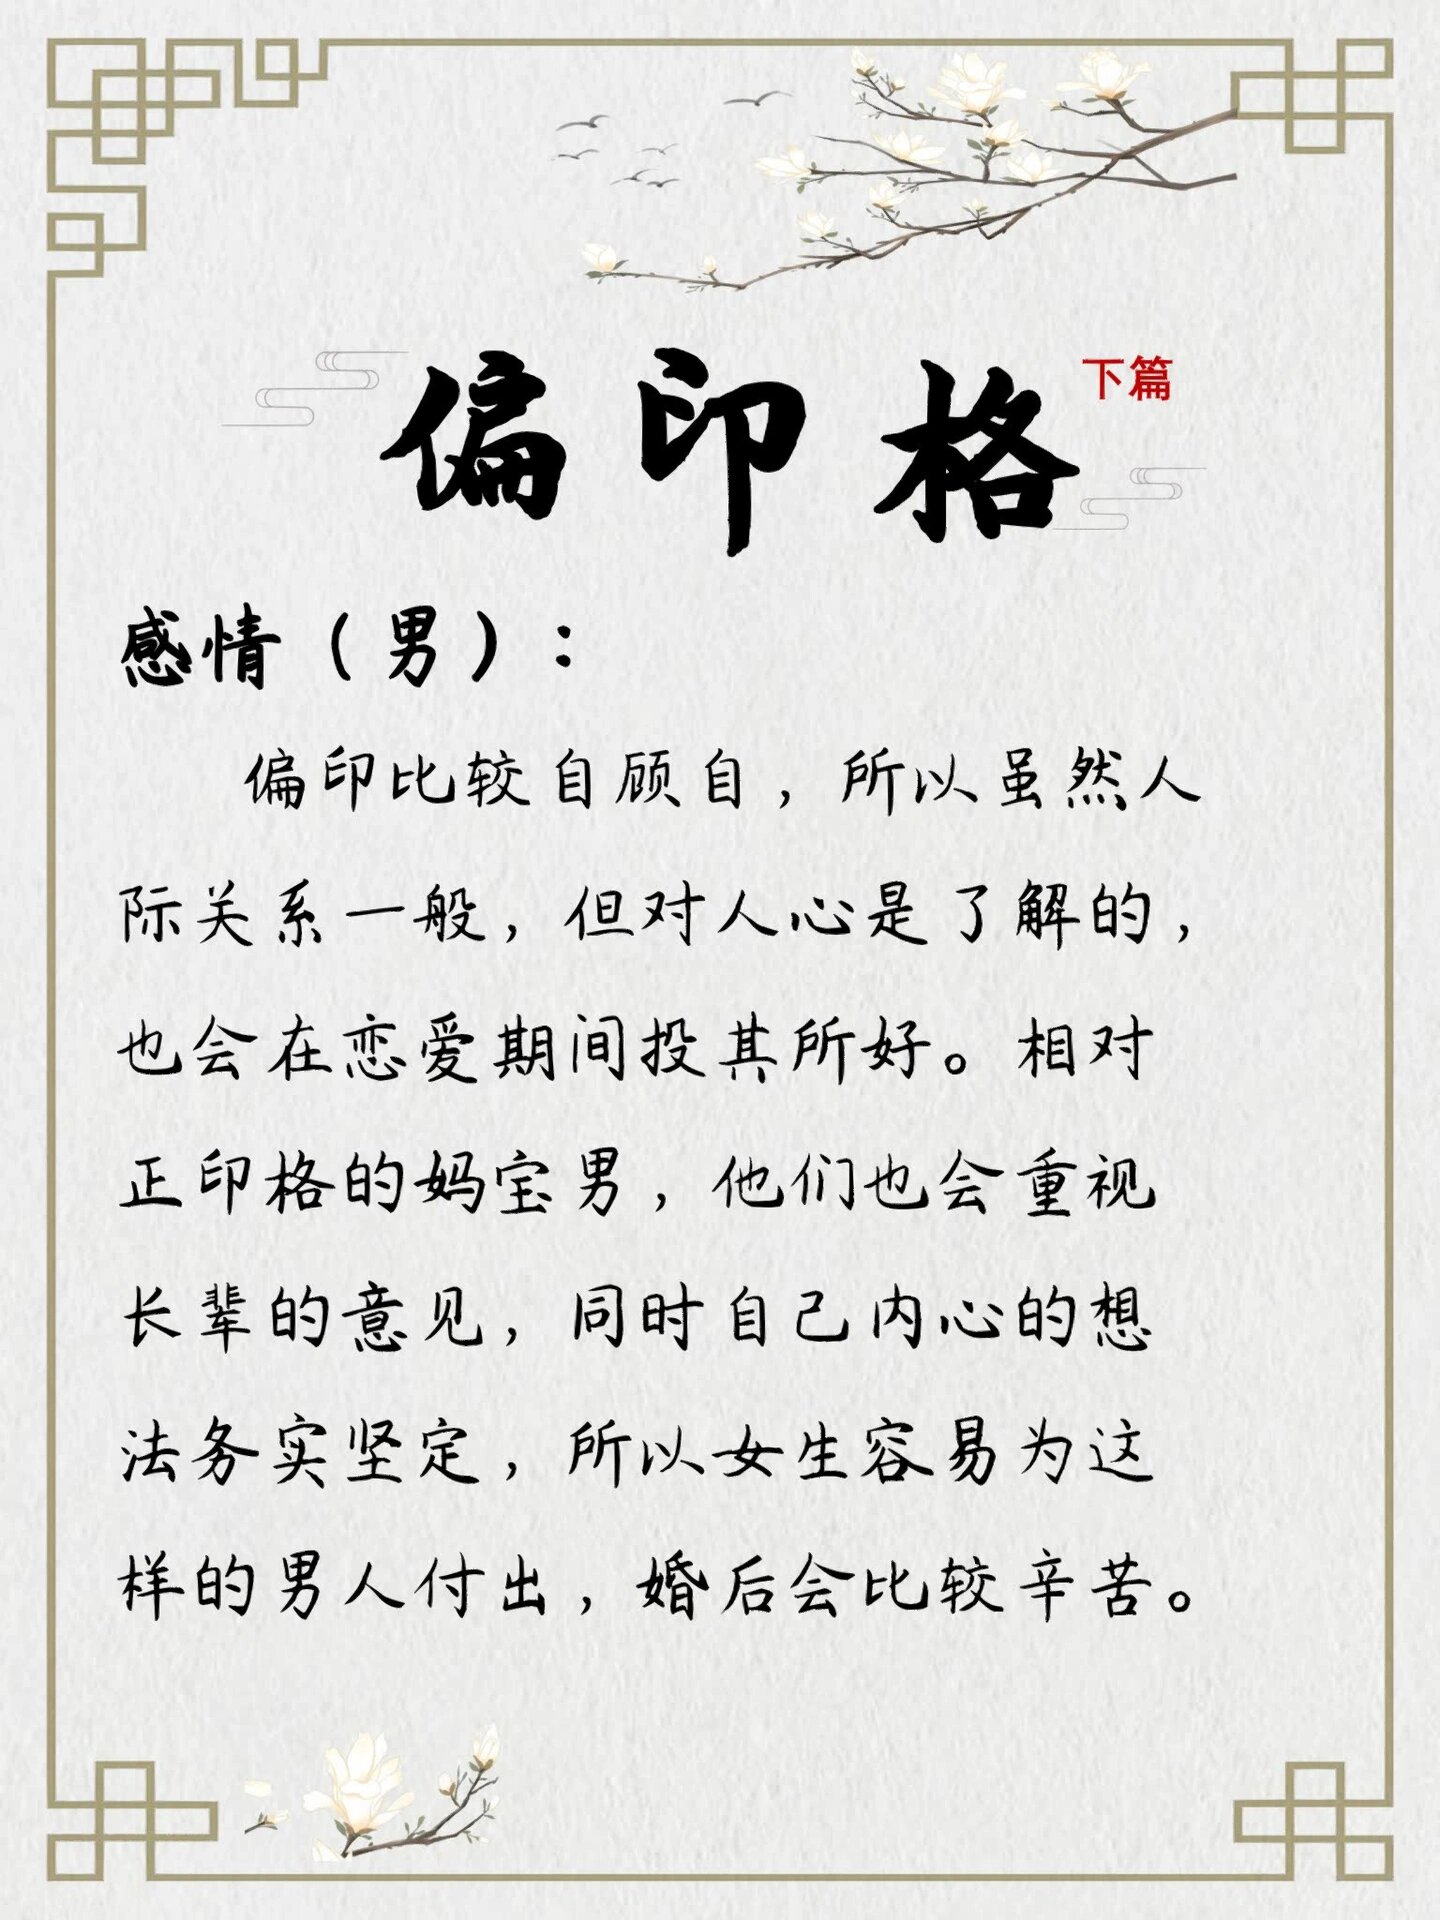 偏印格 下篇
感情（男）：
偏印比较自顾自，所以虽然人
际关系一般，但对人心是了解的，
也会在恋爱期间投其所好。相对
正印格的妈宝男，他们也会重视
长辈的意见，同时自己内心的想
法务实坚定，所以女生容易为这
样的男人付出，婚后会比较辛苦。